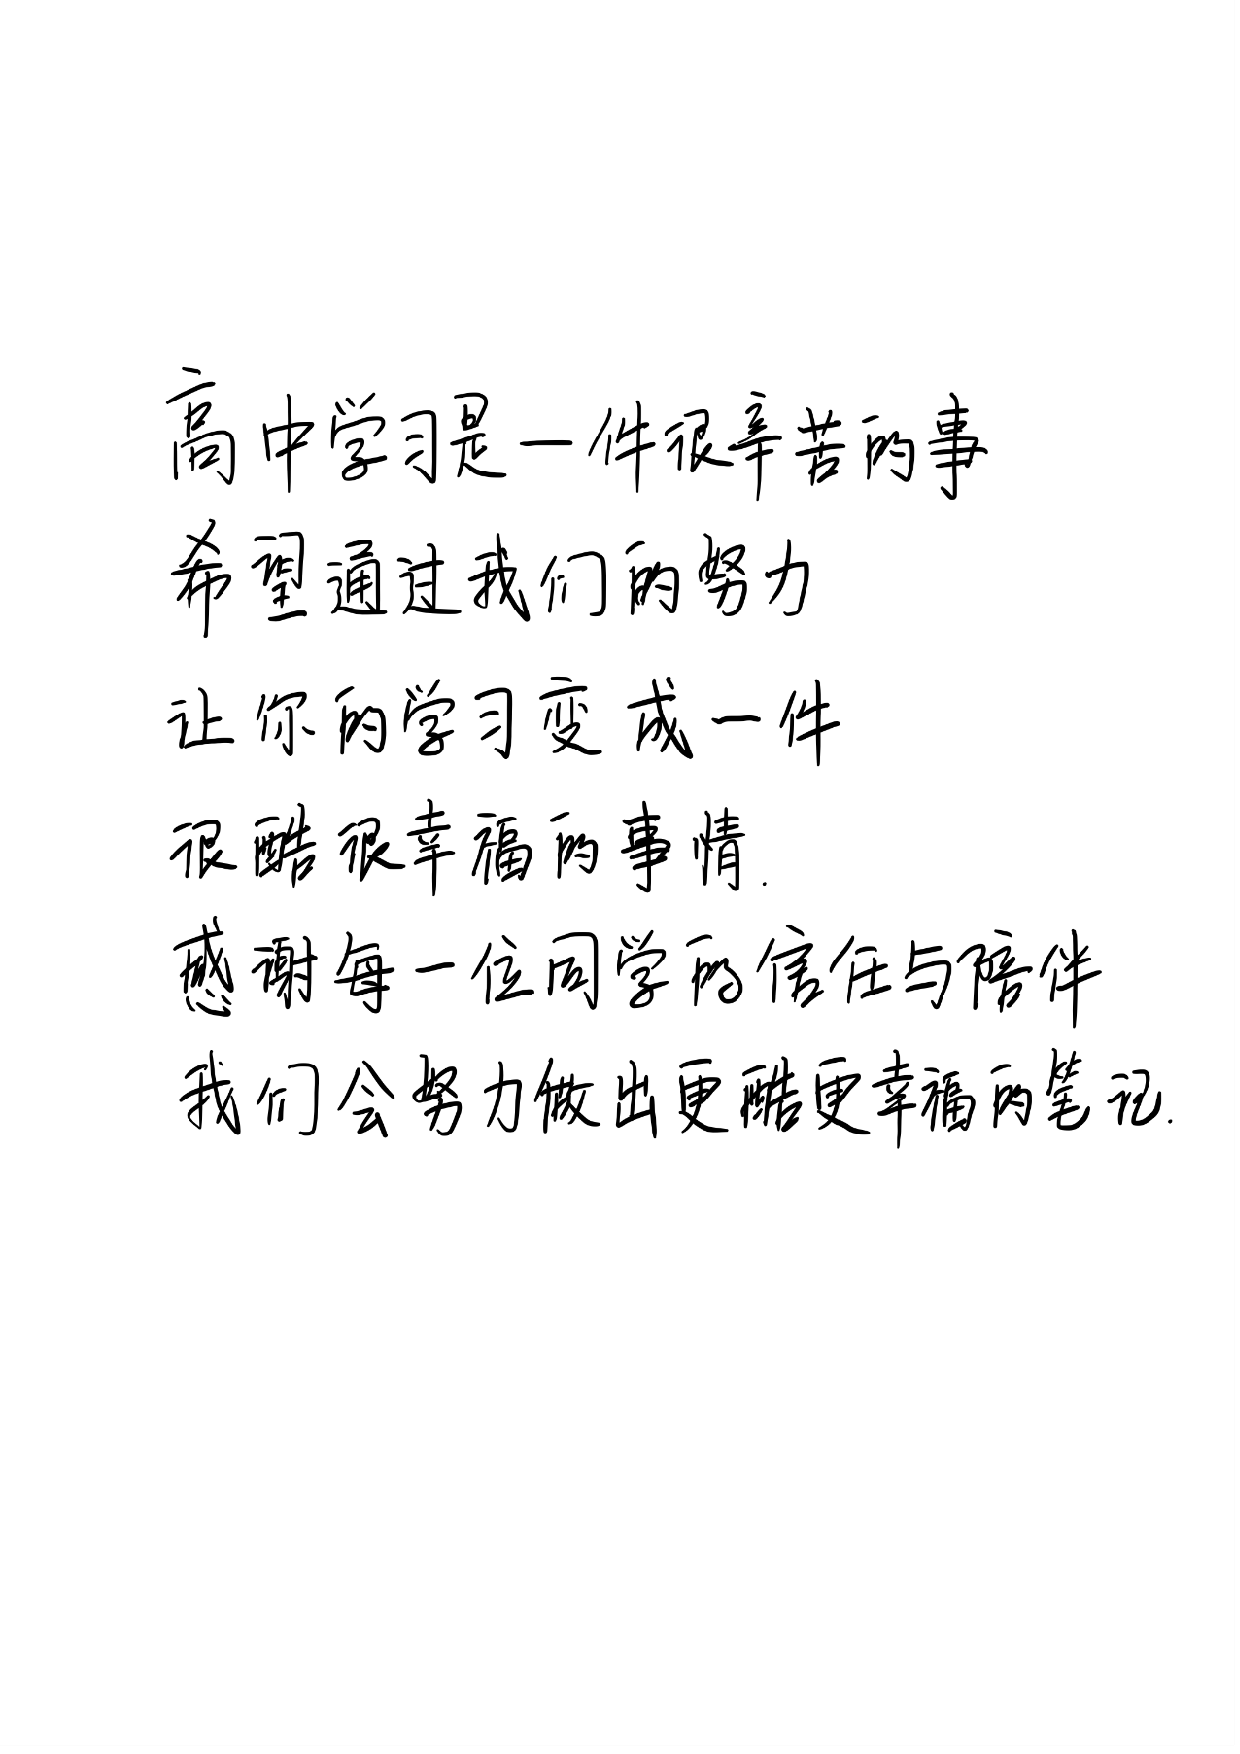 高中学习是一件很辛苦的事
希望通过我们的努力
让你的学习变成一件
很酷很幸福的事情.
感谢每一位同学的信任与陪伴
我们会努力做出更酷更幸福的笔记.